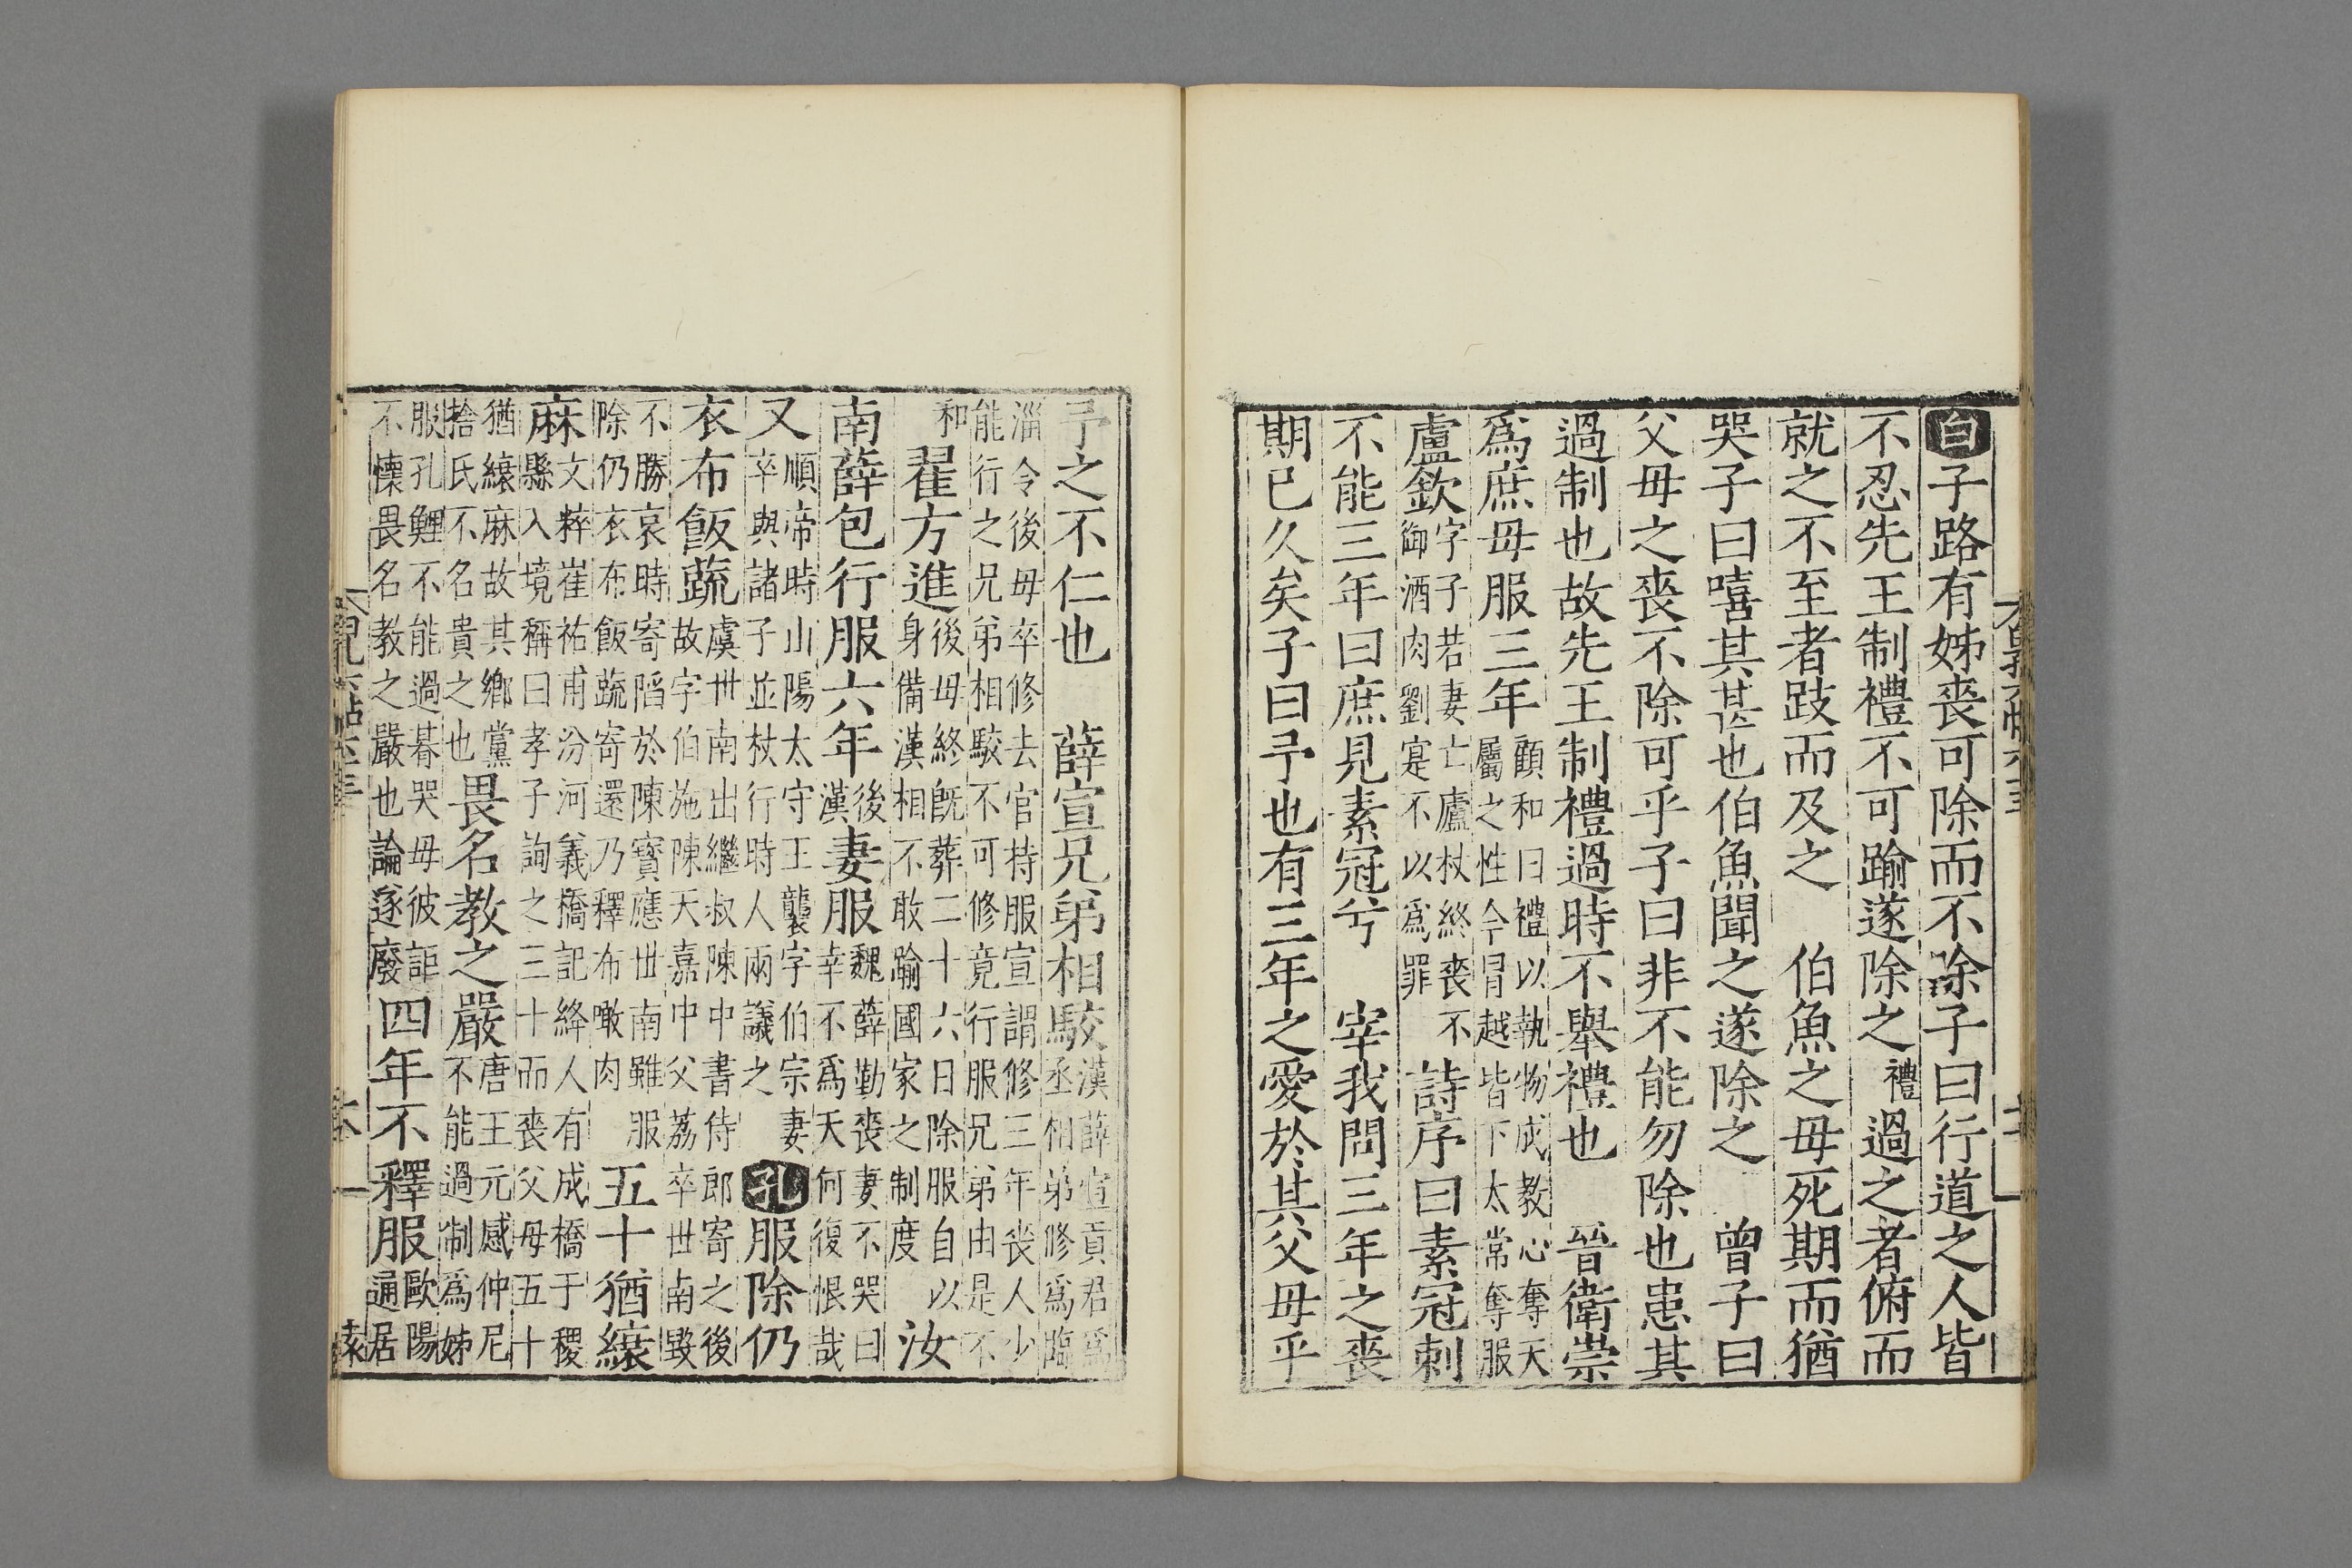 白子路有姊喪可除而不除子曰行道之人皆
不忍先王制禮不可踰遂除之禮過之者俯而
就之不至者跂而及之　伯魚之母死期而猶
哭子曰嘻其甚也伯魚聞之遂除之　曾子曰
父母之喪不除可乎子曰非不能勿除也患其
過制也故先王制禮過時不舉禮也　晉衛崇
爲庶母服三年顧和曰禮以執物成教心奪天屬之性今冐越皆下太常奪服
盧欽字子若妻亡廬杖終喪不御酒肉劉寔不以爲罪　詩序曰素冠刺
不能三年曰庶見素冠兮　宰我問三年之喪
期已久矣子曰予也有三年之愛於其父母乎
予之不仁也　薛宣兄弟相駮漢薛宣貢君爲丞相弟修爲臨
淄令後母卒修去官持服宣謂修三年喪人少能行之兄弟相駮不可修竟行服兄弟由是不
和　翟方進後母終既葬二十六日除服自以身備漢相不敢踰國家之制度　汝
南薛包行服六年後漢妻服魏薛勤喪妻不哭曰幸不爲天何復恨哉
又順帝時山陽太守王龔字伯宗妻卒與諸子並杖行時人兩議之　孔服除仍
衣布飯蔬虞世南出繼叔陳中書侍郎寄之後故字伯施陳天嘉中父荔卒世南毀
不勝哀時寄陷於陳寶應世南雖服除仍衣布飯蔬寄還乃釋布噉肉　五十猶縗
麻文粹崔祐甫汾河義橋記絳人有成橋于稷縣入境稱曰孝子詢之三十而喪父母五十
猶縗麻故其鄉黨捨氏不名貴之也畏名教之嚴唐王元感仲尼不能過制爲姊
服孔鯉不能過朞哭母彼詎不懷畏名教之嚴也論遂廢四年不釋服歐陽逼居